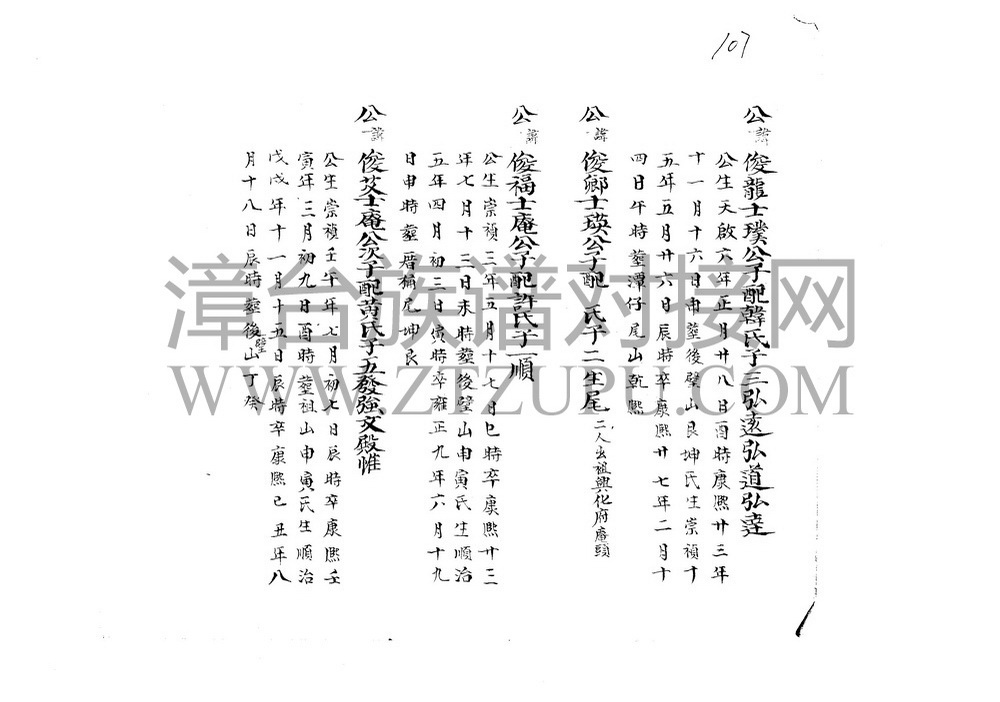 107
公諱俊龍士璞公子配韓氏子三弘遠弘道弘達
公生天啟六年正月廿八日酉時康熙廿三年
十一月十六日申塟後壁山艮坤氏生崇禎十
五年五月廿六日辰時卒康熙廿七年二月十
四日午時塟潭仔尾山乾熙
公諱俊鄉士瑛公子配 氏子二生尾二人出祖興化府庵頭
公諱俊福士庵公子配許氏子一順
公生崇禎三年五月十七日巳時卒康熙廿三
年七月十三日未時塟後壁山申寅氏生順治
五年四月初三日寅時卒雍正九年六月十九
日申時塟厝稱尾坤艮
公諱俊艾士庵公次子配黃氏子五發強文殿惟
公生崇禎壬午年七月初七日辰時卒康熙壬
寅年三月初九日酉時塟祖山申寅氏生順治
戊戌年十一月十五日辰時卒康熙己丑年八
月十八日辰時塟後壁山丁癸
漳台族谱对接网
WWW.ZTZUPU.COM